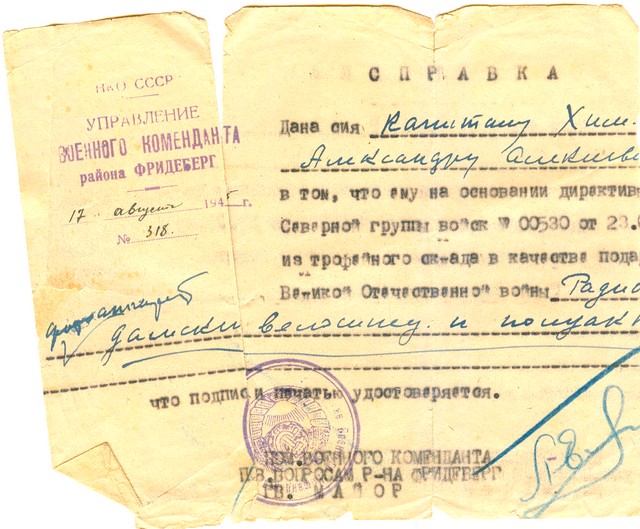 НКО СССР
УПРАВЛЕНИЕ
ВОЕННОГО КОМЕНДАНТА
района ФРИДЕБЕРГ
17 августа 1945 г.
№ 318.
СПРАВКА
Дана сия Капитану Хим
Александру Алексеев
в том, что ему на основании директив
Северной группы войск № 00530 от 23.
из трофейного склада в качестве пода
Великой Отечественной войны Радио
дамски велосипед и полуак
что подписи и печатью удостоверяется.
ПОМ.ВОЕННОГО КОМЕНДАНТА
П.В.ВОПРОСАМ Р-НА ФРИДЕБЕРГ
ГВ. МАЙОР